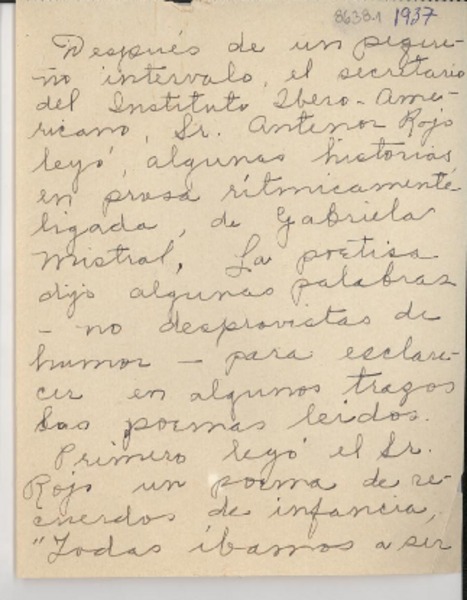 8638.1 1937
Después de un peque-
ño intervalo, el secretario
del Instituto Ibero-Ame-
ricano, Sr. Antenor Rojo
leyó, algunas historias
en prosa rítmicamente
ligada, de Gabriela
Mistral, La poetisa
dijo algunas palabras
- no desprovistas de
humor - para esclare-
cer en algunos trazos
los poemas leidos.
Primero leyó el Sr.
Rojo un poema de re-
cuerdos de infancia,
"Todas íbamos a ser